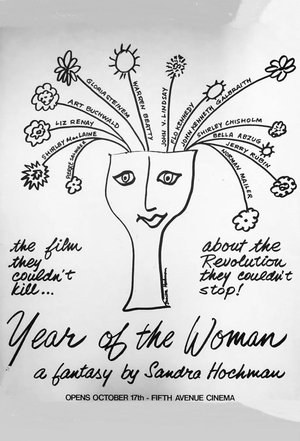 SHIRLEY MacLAINE
LIZ RENAY
ART BUCHWALD
GLORIA STEINEM
WARREN BEATTY
JOHN V. LINDSAY
FLO KENNEDY
JOHN KENNETH GALBRAITH
SHIRLEY CHISHOLM
BELLA ABZUG
JERRY RUBIN
NORMAN MAILER
the film
they
couldn't
kill...
about the
Revolution
they couldn't
stop!
Year of the Woman
a fantasy by Sandra Hochman
OPENS OCTOBER 17th - FIFTH AVENUE CINEMA